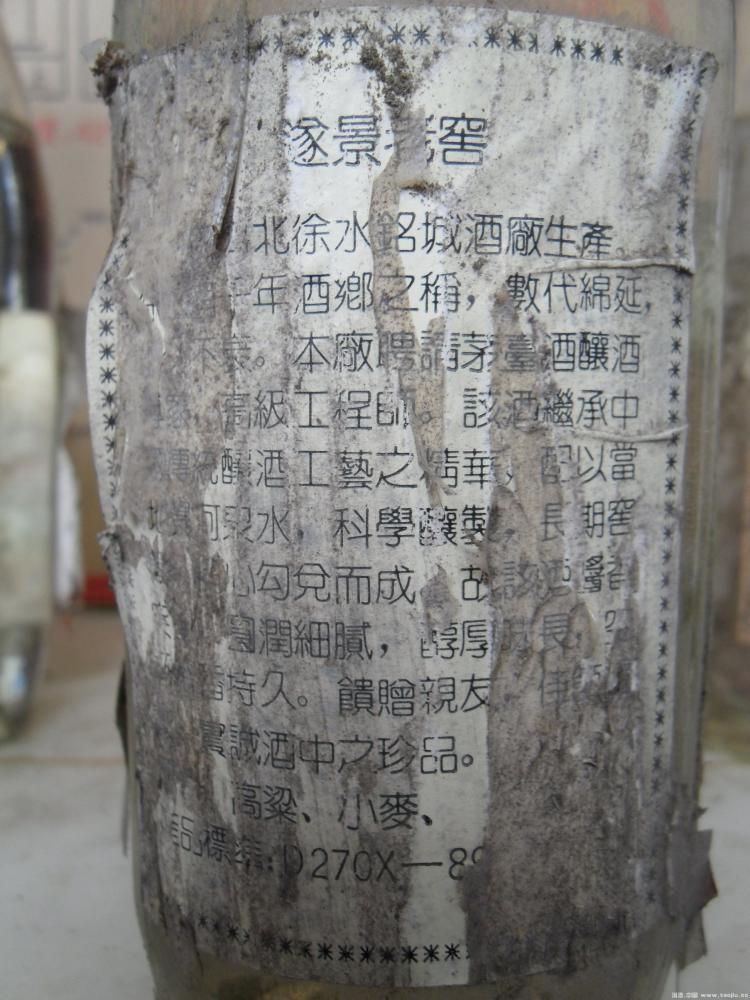 遂景老窖
北徐水銘城酒廠生產。
年酒鄉之稱，數代綿延，
不衰。本廠聘請茅臺酒釀酒
高級工程師。該酒繼承中
傳統釀酒工藝之精華，配以當
河泉水，科學釀製，長期窖
心勾兌而成。故該酒
潤細膩，醇厚 長，
香持久。饋贈親友，
實誠酒中之珍品。
高粱、小麥、
品標準：D270X—89
www.taojiu.cn